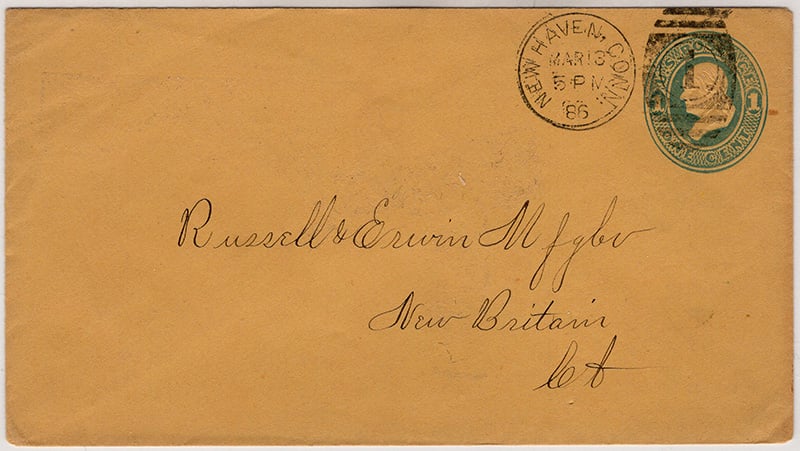 NEW HAVEN, CONN.
MAR 13
5 PM
86
1 1
Russell & Erwin Mfg Co
New Britain
Ct